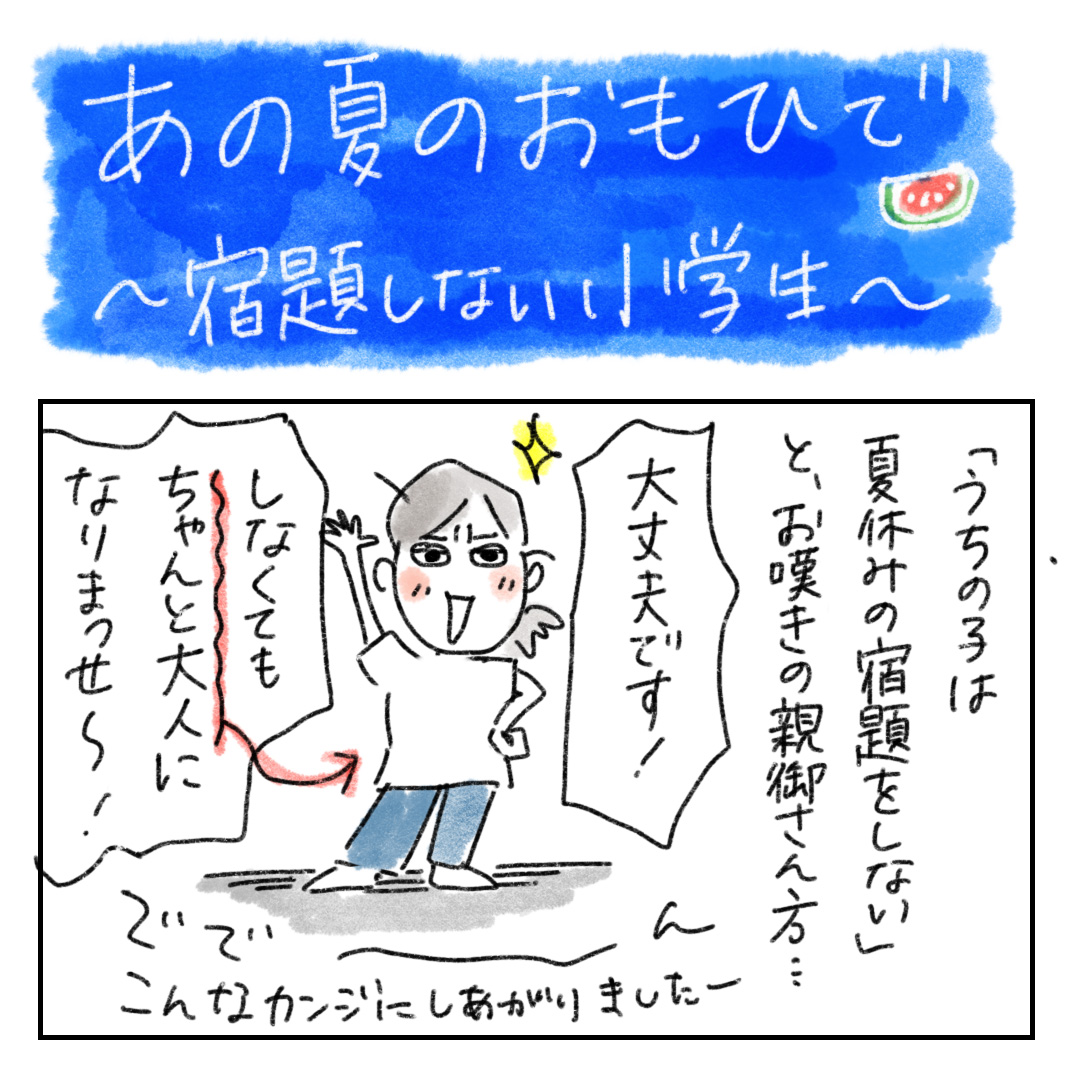 あの夏のおもひで
～宿題しない小学生～
「うちの子は
夏休みの宿題をしない」
と、お嘆きの親御さん方…
大丈夫です！
しなくても
ちゃんと大人に
なりまっせ～！
どで―――ん
こんなカンジにしあがりましたー